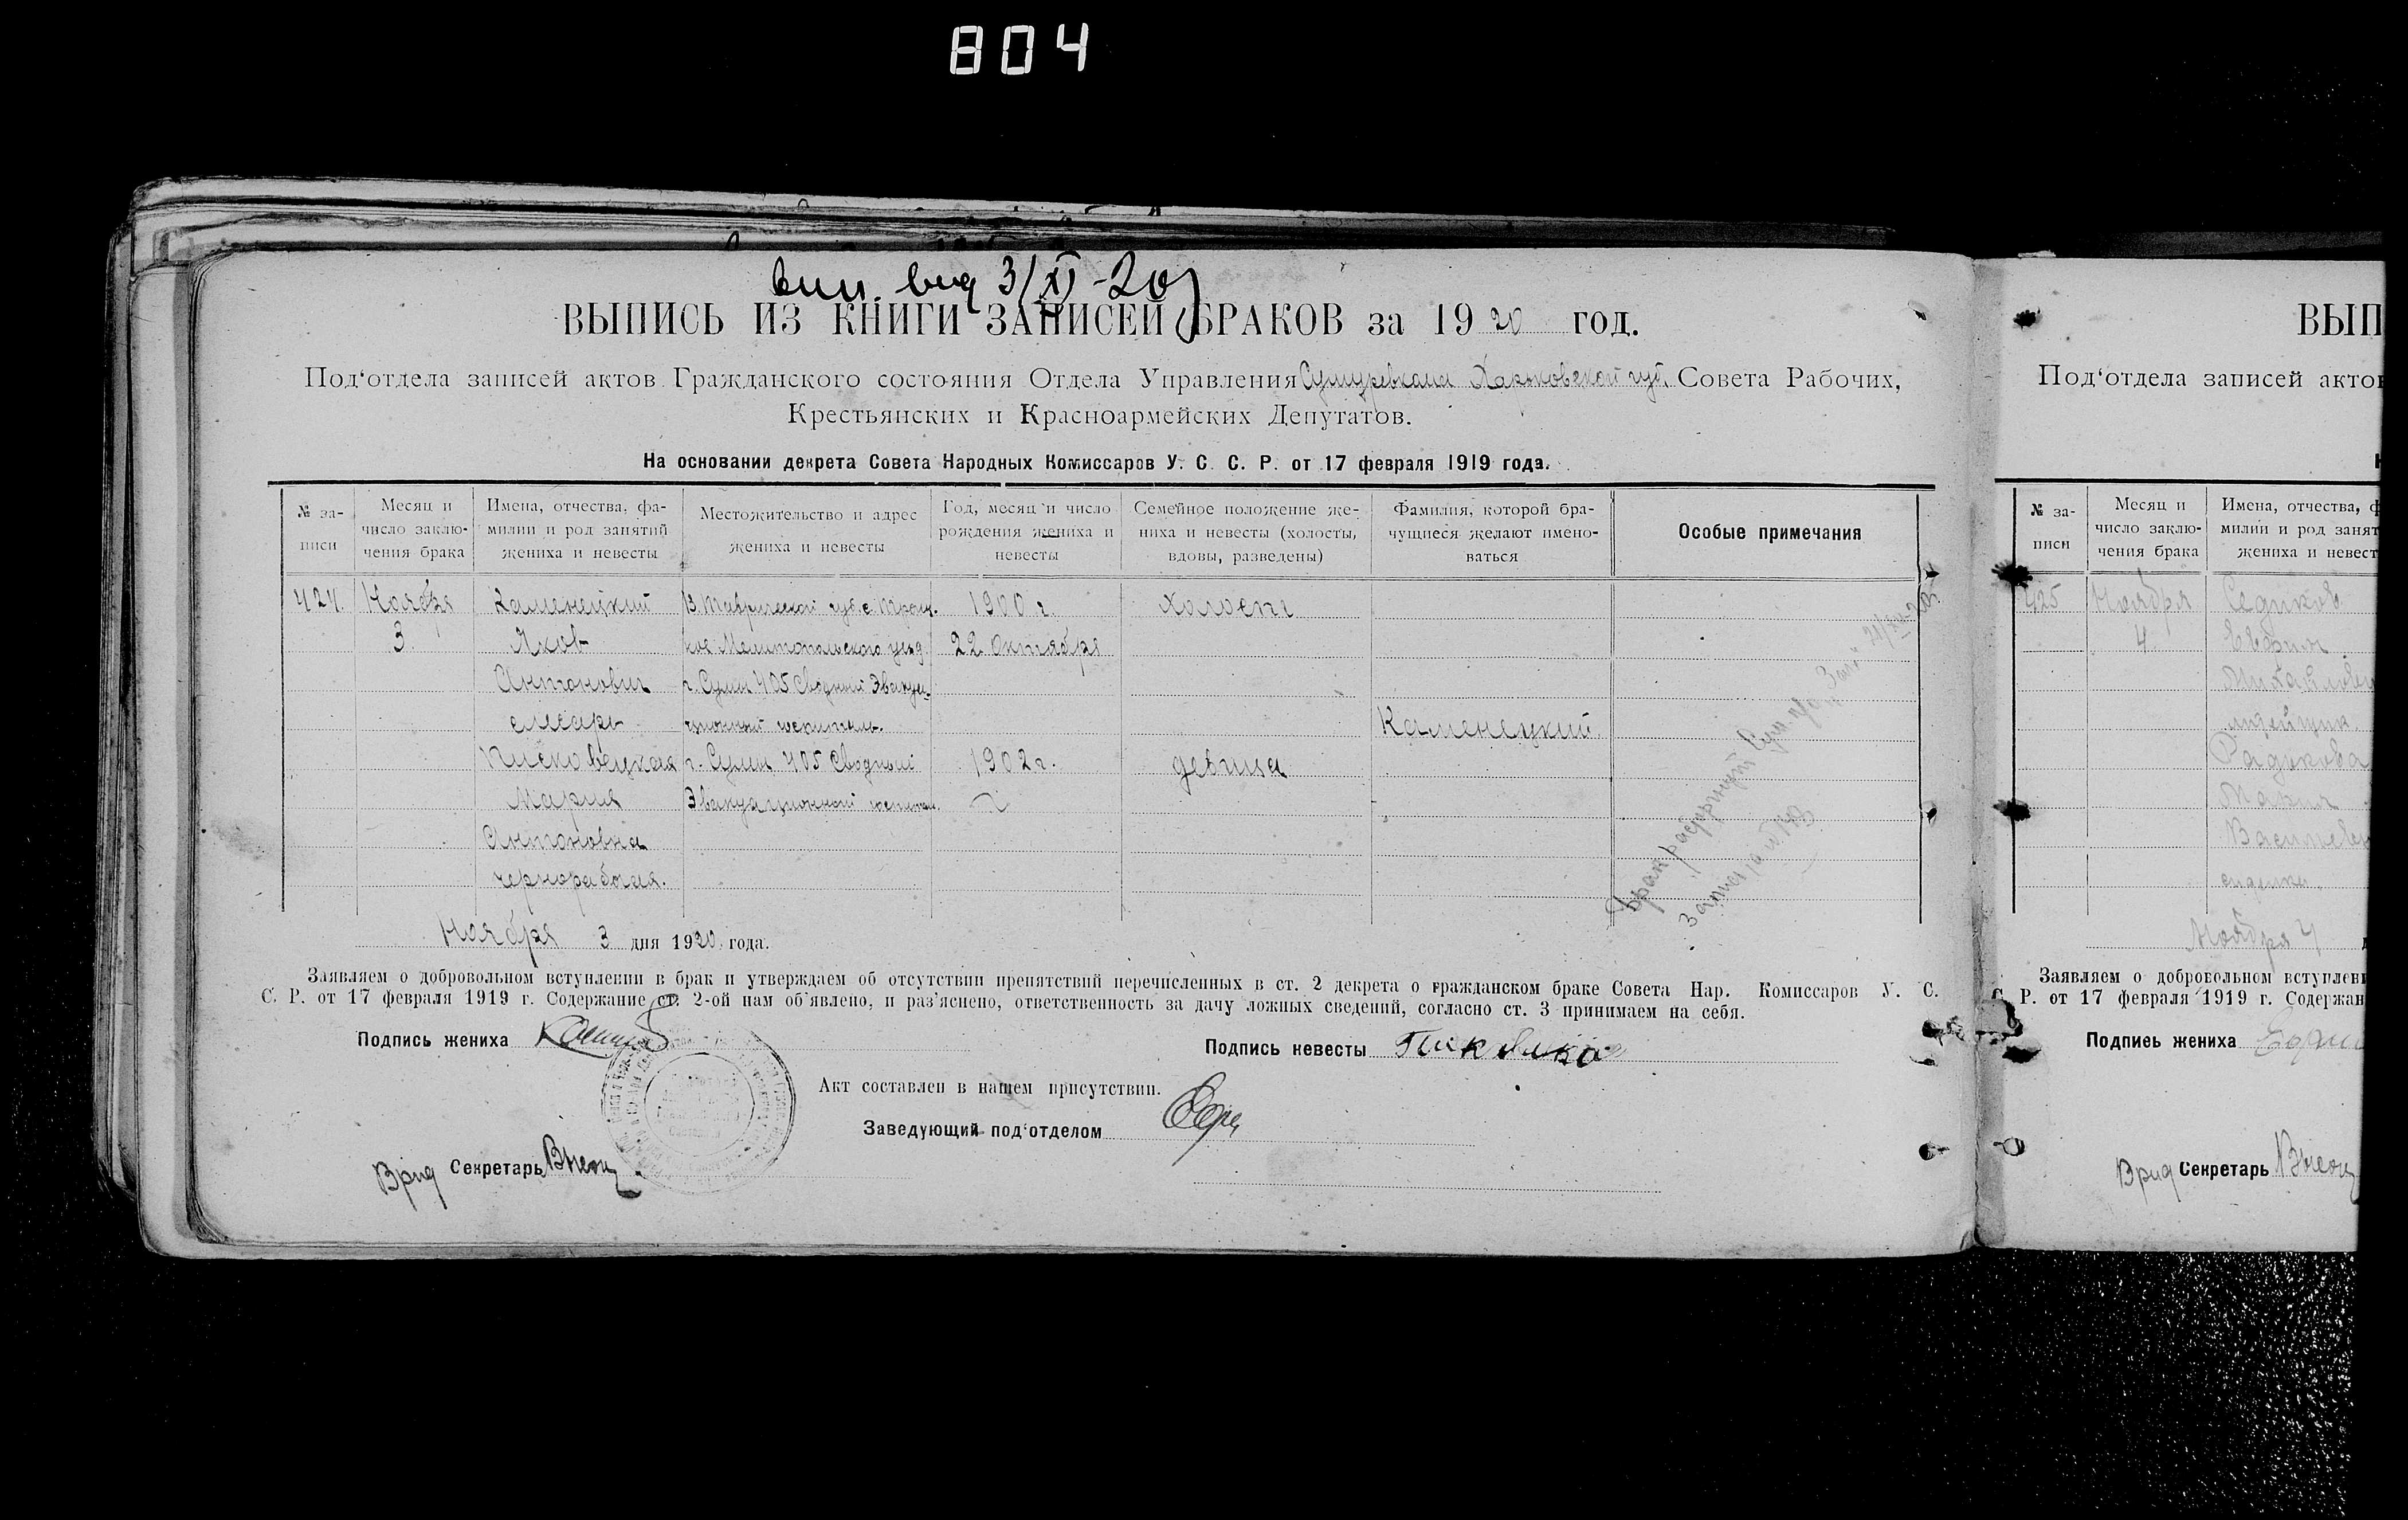 804
вып. выд 3/XI-20г
ВЫПИСЬ ИЗ КНИГИ ЗАПИСЕЙ БРАКОВ за 1920 год.
Под‘отдела записей актов Гражданского состояния Отдела Управления Сумуревкома Харьковской губ. Совета Рабочих,
Крестьянских и Красноармейских Депутатов.
На основании декрета Совета Народных Комиссаров У. С. С. Р. от 17 февраля 1919 года.
№ за-писи Месяц и число заклю-чения брака Имена, отчества, фа-милии и род занятий жениха и невесты Местожительство и адрес жениха и невесты Год, месяц и число рождения жениха и невесты Семейное положение же-ниха и невесты (холосты, вдовы, разведены) Фамилия, которой бра-чущиеся желают имено-ваться Особые примечания
424. Ноября Каменецкий Таврической губ с. Троиц- 1900 г. холост
3. Яков кое Мелитопольского уезд. 22 Октября
Антонович г. Сумы 405 Сводный Эвакуа-
слесарь ционный госпиталь. Каменецкий.
Писковецкая г. Сумы 405 Сводный 1902 г. девица
Мария Эвакуационный госпитал.
Антоновна
чернорабочая.
Брак расторгнут
Ноября 3 дня 1920 года.
Заявляем о добровольном вступлении в брак и утверждаем об отсутствии препятствий перечисленных в ст. 2 декрета о гражданском браке Совета Нар. Комиссаров У. С.
С. Р. от 17 февраля 1919 г. Содержание ст. 2-ой нам об‘явлено, и раз‘яснено, ответственность за дачу ложных сведений, согласно ст. 3 принимаем на себя.
Подпись жениха
Подпись невесты
Акт составлен в нашем присутствии.
Заведующий под‘отделом
Врид Секретарь
ВЫП
Под‘отдела записей актов
№ за-писи Месяц и число заклю-чения брака Имена, отчества, ф милии и род занят жениха и невест
425 Ноября Седиков
4 Ефрим
Михайлович
литейщик
Радикова
Мария
Васильевн
сиделка.
Ноября 4
Заявляем о добровольном вступлени
С. Р. от 17 февраля 1919 г. Содержан
Подпись жениха
Врид Секретарь